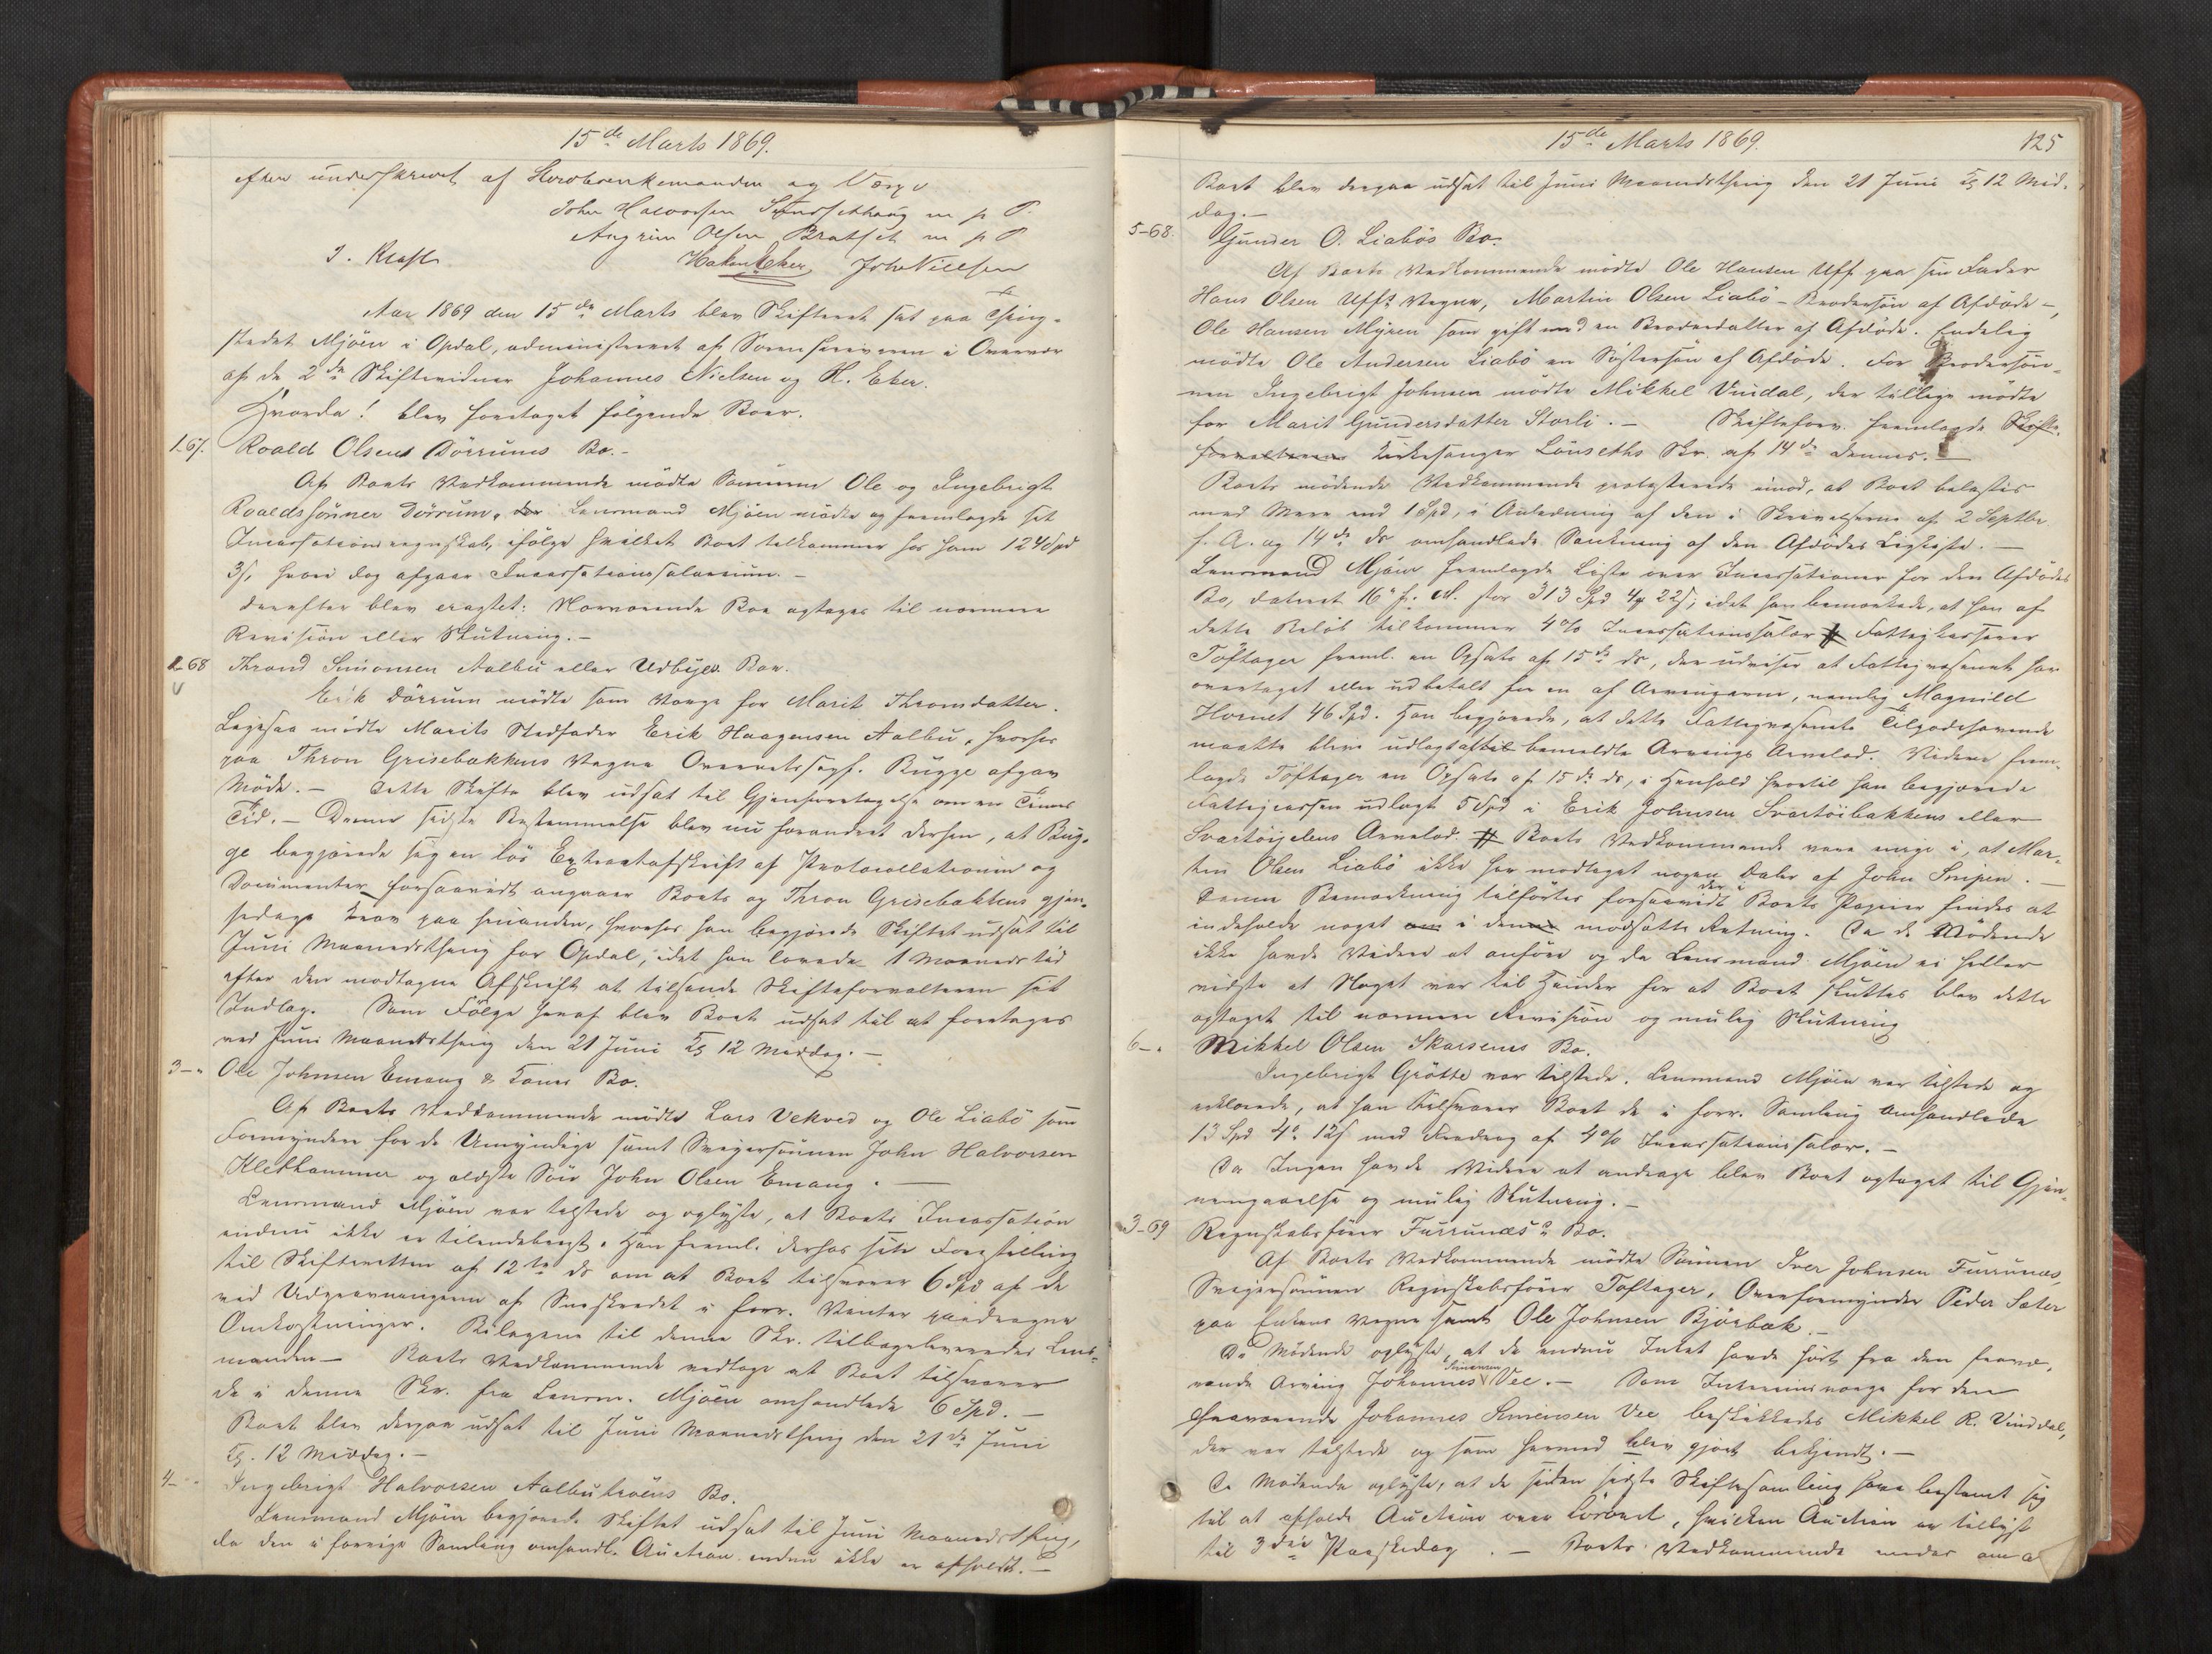 15de Marts 1869.
efter underskrevet af Herobrenkemanden og Værge
John Halvorsen Sundsethaug m p P.
Angrim Olsen Bratset m p P
J. Krafft Hakon Eker Joh Nielsen
Aar 1869 den 15de Marts blev Skifteret sat paa Thing-
stedet Mjöen i Opdal, administreret af Sorenskriveren i Overvær
af de 2de Skiftevidner Johannes Nielsen og H. Eker.
Hvorda! blev foretaget følgende Boer.
1-67. Roald Olsens Dörrums Bo.-
Af Boets Vedkommende mødte Sønnerne Ole og Ingebrigt
Roaldssønner Dörrum. Lensmand Mjöen mødte og fremlagde sit
Incassationsregnskab, ifølge hvilket Boet tilkommer hos ham 124 Spd
3/, hvori dog afgaar Incassationssalarium.-
Derefter blev eragtet: Nærværende Boe optages til nærmere
Revision eller Slutning.-
2-68 Thrond Simonsen Aalbu eller Udbyes Boe.
Erik Dörrum mødte som Værge for Marit Thronsdatter.
Ligesaa mødte Marits Stedfader Erik Haagensen Aalbu, hvorhos
paa Thron Grisebakkens Vegne Overretssagf. Bügge afgav
Møde.- Dette Skifte blev udsat til Gjenforetagelse om en Times
Tid.- Denne sidste Bestemmelse blev nu forandret derhen, at Büg-
ge begjærede sig en lös Extractafskrift af Protocollationen og
Documenter forsaavidt angaaer Boets og Thron Grisebakkens gjen-
sidige Krav paa hinanden, hvorhos han begjærede Skiftet udsat til
Juni Maanedsthing for Opdal, idet han lovede 1 Maaneds tid
efter den modtagne Afskrift at tilsende Skifteforvalteren sit
Indlæg. Som Følge heraf blev Boet udsat til at foretages
ved Juni Maanedsthing den 21 Juni Kl 12 Middag.-
3-" Ole Johnsen Emang & Kones Bo.
Af Boets Vedkommende mødte Lars Vekved og Ole Liabö som
Formyndere for de Umyndige samt Svigersønnen John Halvorsen
Klethammer og ældste Søn John Olsen Emang.-
Lensmand Mjöen var tilstede og oplyste, at Boets Incassation
endnu ikke er tilendebragt. Han freml. derhos sin Forestilling
til Skifteretten af 12te ds om at Boet tilsvarer 6 Spd af de
ved Udgravningen af Sneskredet i forr. Vinter paadragne
Omkostninger. Bilagene til denne Skr. tilbageleveredes Lens-
manden- Boets Vedkommende vedtoge at Boet tilsvarer
de i denne Skr. fra Lensm. Mjöen omhandlede 6 Spd.-
Boet blev derpaa udsat til Juni Maanedsthing den 21de Juni
Kl. 12 Middag.-
4- " Ingebrigt Halvorsen Aalbutröens Bo.
Lensmand Mjöen begjærede Skiftet udsat til Juni Maanedsthing,
da den i forrige Samling omhandl. Auction endnu ikke er afholdt.-
15de Marts 1869. 125
Boet blev derpaa udsat til Juni Maanedsthing den 21 Juni Kl 12 Mid-
dag.-
5-68. Gunder O. Liabös Bo.
Af Boets Vedkommende mødte Ole Hansen Uff paa sin Fader
Hans Olsen Uffs Vegne, Martin Olsen Liabö - Brodersøn af Afdøde -,
Ole Hansen Myren som gift med en Broderdatter af Afdøde. Endelig
mødte Ole Andersen Liabö en Søstersøn af Afdøde. For Brodersøn-
nen Ingebrigt Johnsen mødte Mikkel Vindal, der tillige mødte
for Marit Gundersdatter Storli.- Skifteforv. fremlagde Skifte-
forvalteren Kirkesanger Lönseths Skr. af 14de dennes.-
Boets mødende Vedkommende protesterede imod, at Boet belastes
med Mere end 1 Spd, i Anledning af den i Skrivelserne af 2 Septbr
f. A. og 14de ds omhandlede Sænkning af den Afdødes Ligkiste.-
Lensmand Mjöen fremlagde Liste over Incassationer for den Afdødes
Bo, dateret 16de f. M. stor 313 Spd 4 22/, idet han bemærkede, at han af
dette Beløb tilkommer 4% Incassationssalær # Fattigkasserer
Toftager freml. en Opsats af 15de ds, der udviser at Fattigvæsenet har
overtaget eller udbetalt for en af Arvingerne, nemlig Magnild
Hornet 46 Spd. Han begjærede, at dette Fattigvæsenets Tilgodehavende
maatte blive udlagt af bemeldte Arvings Arvelod. Videre frem-
lagde Toftager en Opsats af 15de ds, i Henhold hvortil han begjærede
Fattigcassen udlagt 5 Spd i Erik Johnsen Svartöibakkens eller
Svartöiyelens Arvelod. # Boets Vedkommende vare enige i, at Mar-
tin Olsen Liabö ikke har modtaget nogen Daler af John Snipen.-
Denne Bemærkning tilførtes forsaavidt der i Boets Papirer findes at
indeholde noget om i den modsatte Retning. Da de Mødende
ikke havde Videre at anføre og da Lensmand Mjöen ei heller
vidste at Noget var til Hinder for at Boet sluttes blev dette
optaget til nærmere Revision og mulig Slutning
6-" Mikkel Olsen Skarsems Bo.
Ingebrigt Grötte var tilstede. Lensmand Mjöen var tilstede og
erklærede, at han tilsvarer Boet de i forr. Samling omhandlede
13 Spd 4 12/ med Fradrag af 4% Incassationssalær.-
Da Ingen havde Videre at andrage blev Boet optaget til Gjen-
nemgaaelse og mulig Slutning.-
3-69 Regnskabsfører Furrunæs's Bo.
Af Boets Vedkommende mødte Sønnen Iver Johnsen Furrunæs,
Svigersønnen Regnskabsfører Toftager, Overformynder Peder Sæter
paa Enkens Vegne samt Ole Johnsen Bjørbæk.-
De Mødende oplyste, at de endnu Intet havde hørt fra den fravæ-
rende Arving Johannes Simensen Vee.- Som Interimsværge for den
fraværende Johannes Simensen Vee beskikkedes Mikkel R. Vinddal,
der var tilstede og som hermed blev gjort bekjendt.-
De Mødende oplyste, at de siden sidste Skiftesamling have bestemt sig
til at afholde Auction over Løsøret, hvilken Auction er tillyst
til 3die Paaskedag.- Boets Vedkommende ere om a